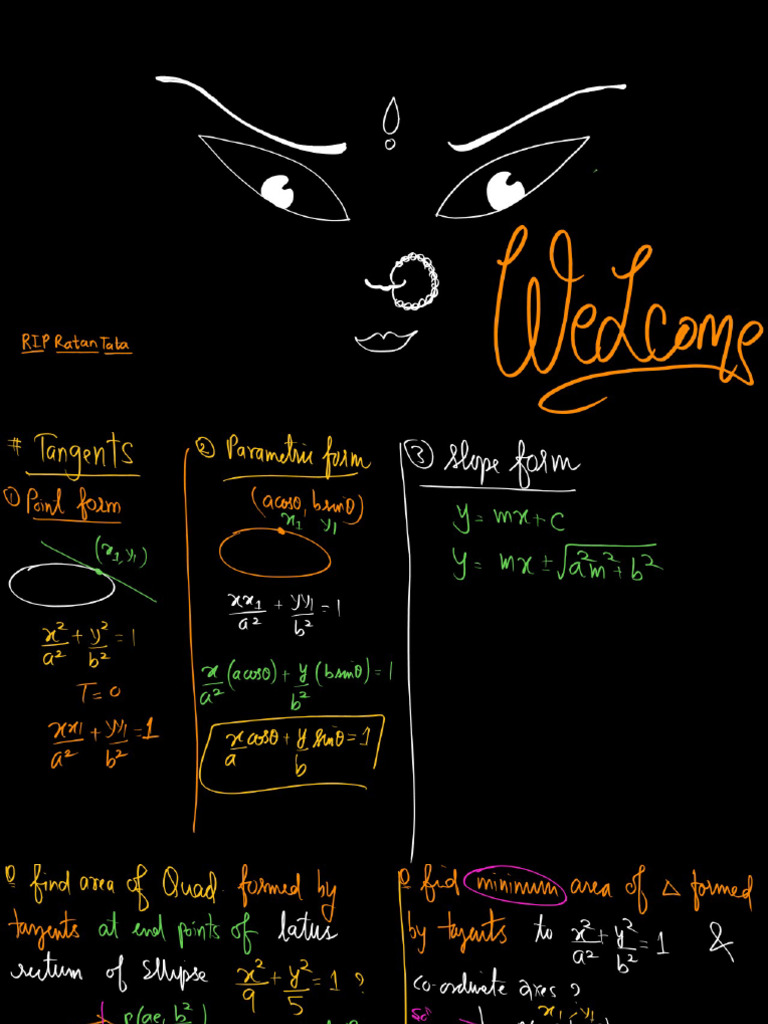 WeLcome
RIP Ratan Tata
# Tangents
① Point form
(x₁, y₁)
x²/a² + y²/b² = 1
T = 0
xx₁/a² + yy₁/b² = 1
② Parametric form
(acosθ, bsinθ)
x₁ y₁
xx₁/a² + yy₁/b² = 1
x/a² (acosθ) + y/b² (bsinθ) = 1
x/a cosθ + y/b sinθ = 1
③ slope form
y = mx + c
y = mx ± √(a²m² + b²)
Q find area of Quad formed by
tangents at end points of latus
rectum of Ellipse x²/9 + y²/5 = 1 ?
P(ae, b²/
Q find minimum area of △ formed
by tangents to x²/a² + y²/b² = 1 &
co-ordinate axes ?
x₁ y₁